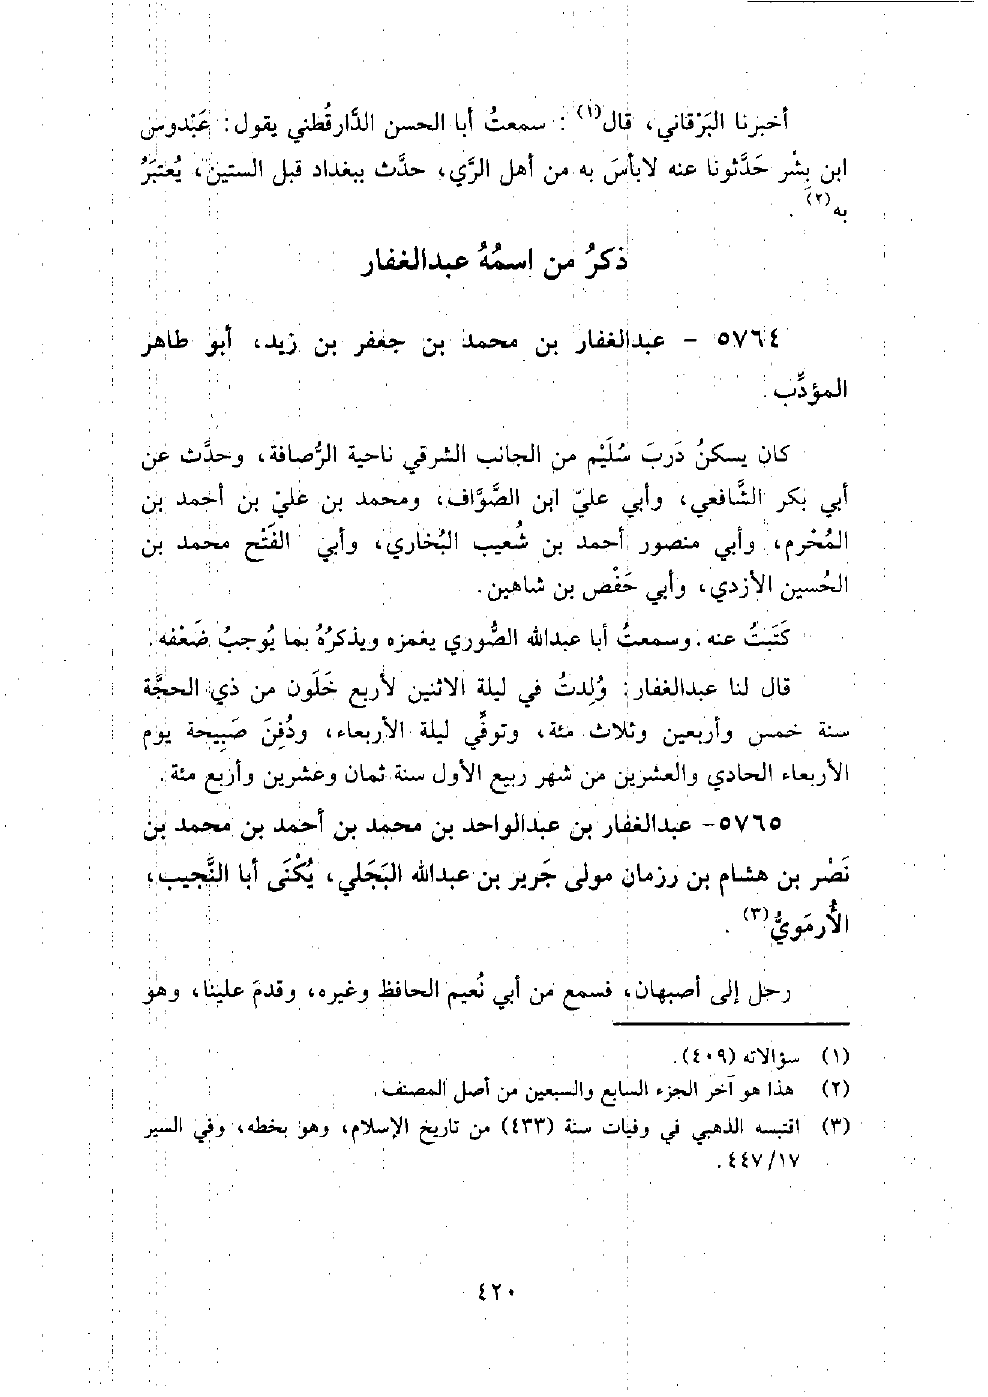 أخبرنا البَرْقاني، قال(١) : سمعتُ أبا الحسن الدَّارقُطني يقول: عَبْدوس
ابن بِشْر حَدَّثونا عنه لابأسَ به من أهل الرَّي، حدَّث ببغداد قبل الستين، يُعتبَرُ
به(٢) .
ذكرُ من اسمُهُ عبدالغفار
٥٧٦٤ – عبدالغفار بن محمد بن جعفر بن زيد، أبو طاهر
المؤدِّب.
كان يسكنُ دَربَ سُلَيْم من الجانب الشرقي ناحية الرُّصافة، وحدَّث عن
أبي بكر الشَّافعي، وأبي عليّ ابن الصَّوَّاف، ومحمد بن عليّ بن أحمد بن
المُخْرِم، وأبي منصور أحمد بن شُعيب البُخاري، وأبي الفَتْح محمد بن
الحُسين الأزدي، وأبي حَفْص بن شاهين.
كَتَبتُ عنه. وسمعتُ أبا عبدالله الصُّوري يغمزه ويذكرُهُ بما يُوجبُ ضَعْفه.
قال لنا عبدالغفار: وُلِدتُ في ليلة الاثنين لأربع خَلَون من ذي الحجَّة
سنة خمس وأربعين وثلاث مئة، وتوفِّي ليلة الأربعاء، ودُفِنَ صَبِيحة يوم
الأربعاء الحادي والعشرين من شهر ربيع الأول سنة ثمان وعشرين وأربع مئة.
٥٧٦٥- عبدالغفار بن عبدالواحد بن محمد بن أحمد بن محمد بن
نَصْر بن هشام بن رزمان مولى جَرير بن عبدالله البَجَلي، يُكْنَى أبا النَّجيب،
الأُرمَويُّ(٣) .
رحل إلى أصبهان، فسمع من أبي نُعيم الحافظ وغيره، وقدمَ علينا، وهو
(١) سؤالاته (٤٠٩).
(٢) هذا هو آخر الجزء السابع والسبعين من أصل المصنف.
(٣) اقتبسه الذهبي في وفيات سنة (٤٣٣) من تاريخ الإسلام، وهو بخطه، وفي السير
١٧/ ٤٤٧.
٤٢٠